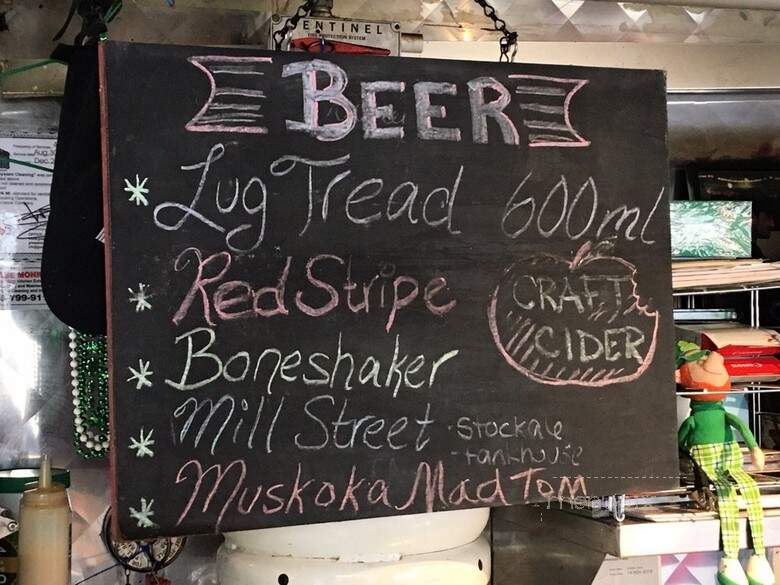 SENTINEL
BEER
* Lug Tread 600ml
* Red Stripe
CRAFT
CIDER
* Boneshaker
* Mill Street
· Stockale
- tankhouse
* Muskoka Mad Tom